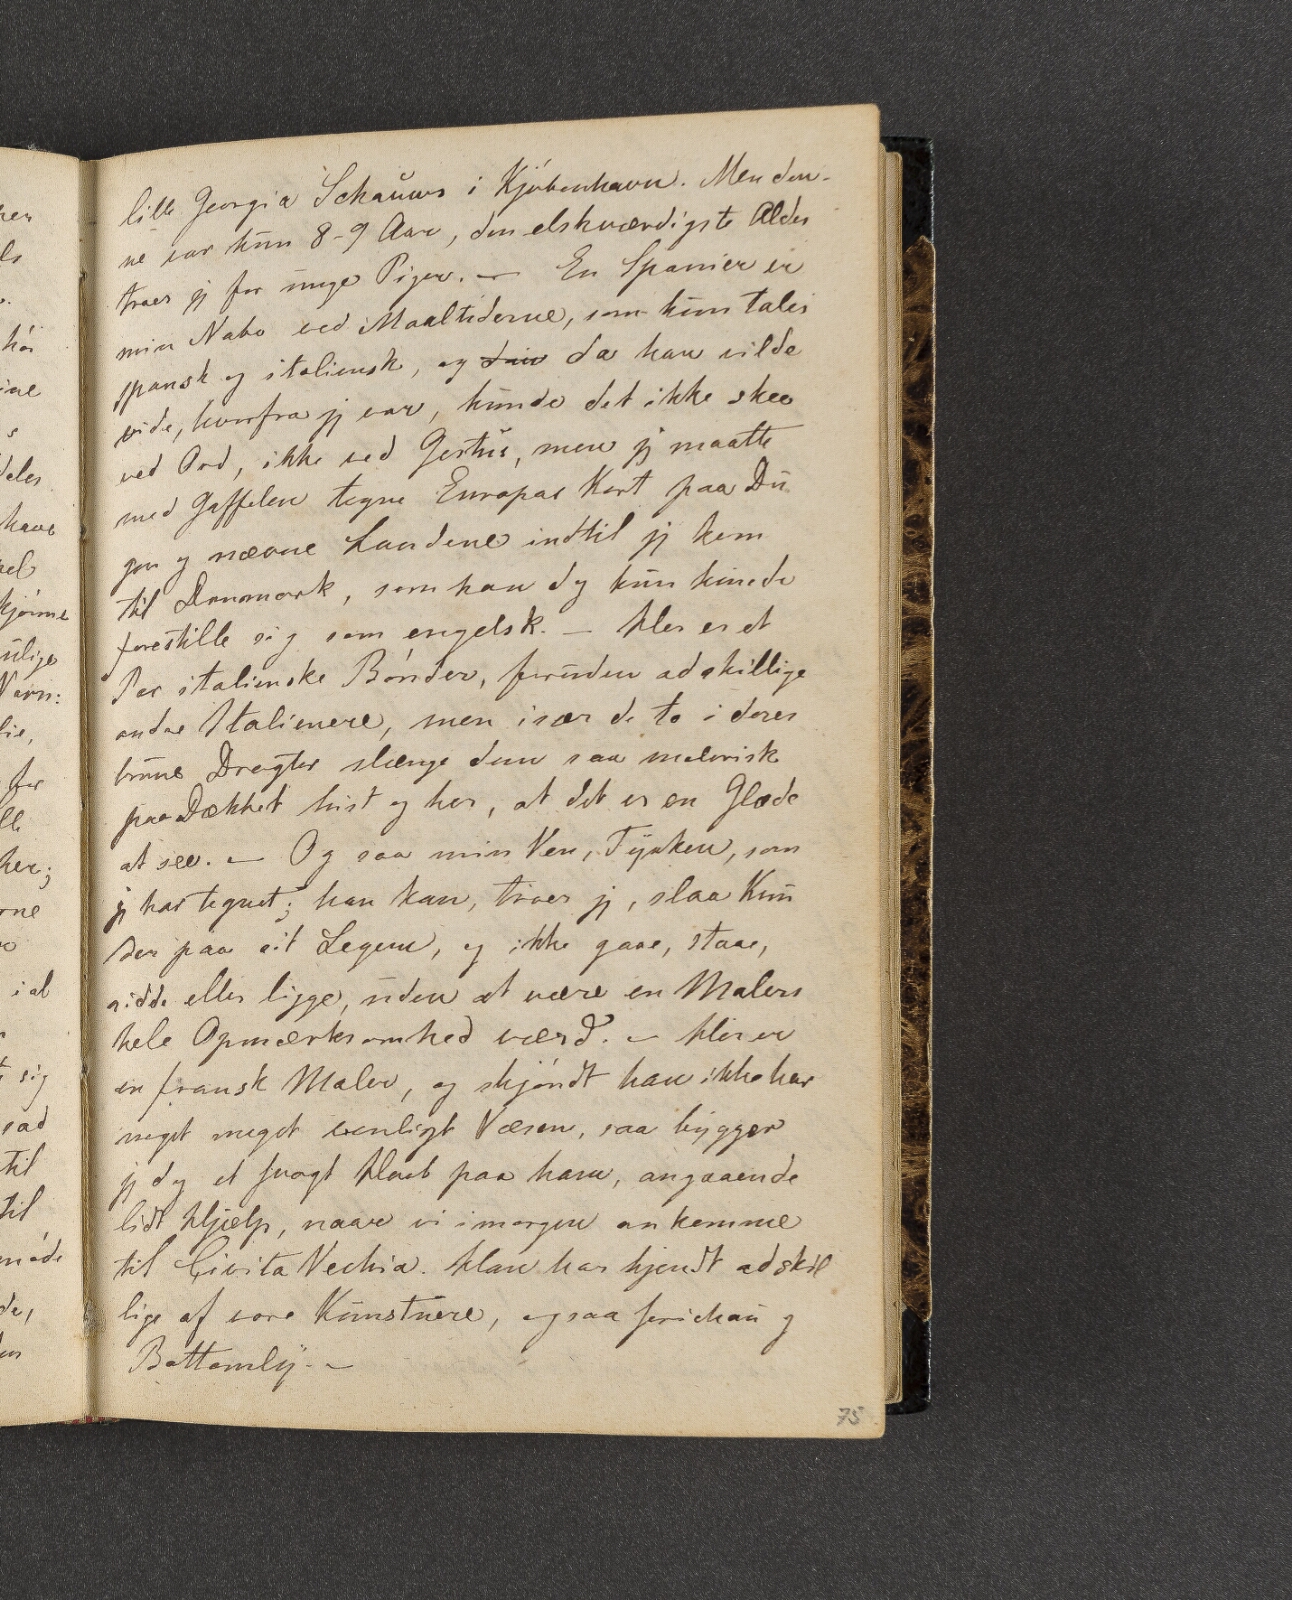 lille Georgia Schauws i Kjøbenhavn. Men den-
ne var kun 8-9 Aar, den elskværdigste Alder
troer jeg for unge Piger. — En Spanier er
min Nabo ved Maaltiderne, som kun taler
spansk og italiensk, og da han vilde
vide, hvorfra jeg var, kunde det ikke skee
ved Ord, ikke ved Gestus, men jeg maatte
med Gaffelen tegne Europas Kort paa Du
gen og nævne Landene indtil jeg kom
til Danmark, som han dog kun kunde
forestille sig som engelsk. — Her er et
Par italienske Bønder, foruden adskillige
andre Italienere, men især de to i deres
brune Dragter slænge dem saa malerisk
paa Dækket hist og her, at det er en Glæde
at see. — Og saa min Ven, Tyrken, som
jeg har tegnet; han kan, troer jeg, slaa Kun
der paa sit Legem, og ikke gaae, staae,
sidde eller ligge, uden at være en Malers
hele Opmærksomhed værd. — Her er
en fransk Maler, og skjøndt han ikke har
noget meget venligt Væsen, saa bygger
jeg dog et svagt Haab paa ham, angaaende
lidt Hjælp, naar vi imorgen ankomme
til Civita Vechia. Han har kjendt adskil
lige af vore Kunstnere, ogsaa Jerichau og
Bottomley. —
75
her
ls
s
deles
have
Navn:
for
her;
i al
sig
sad
til
til